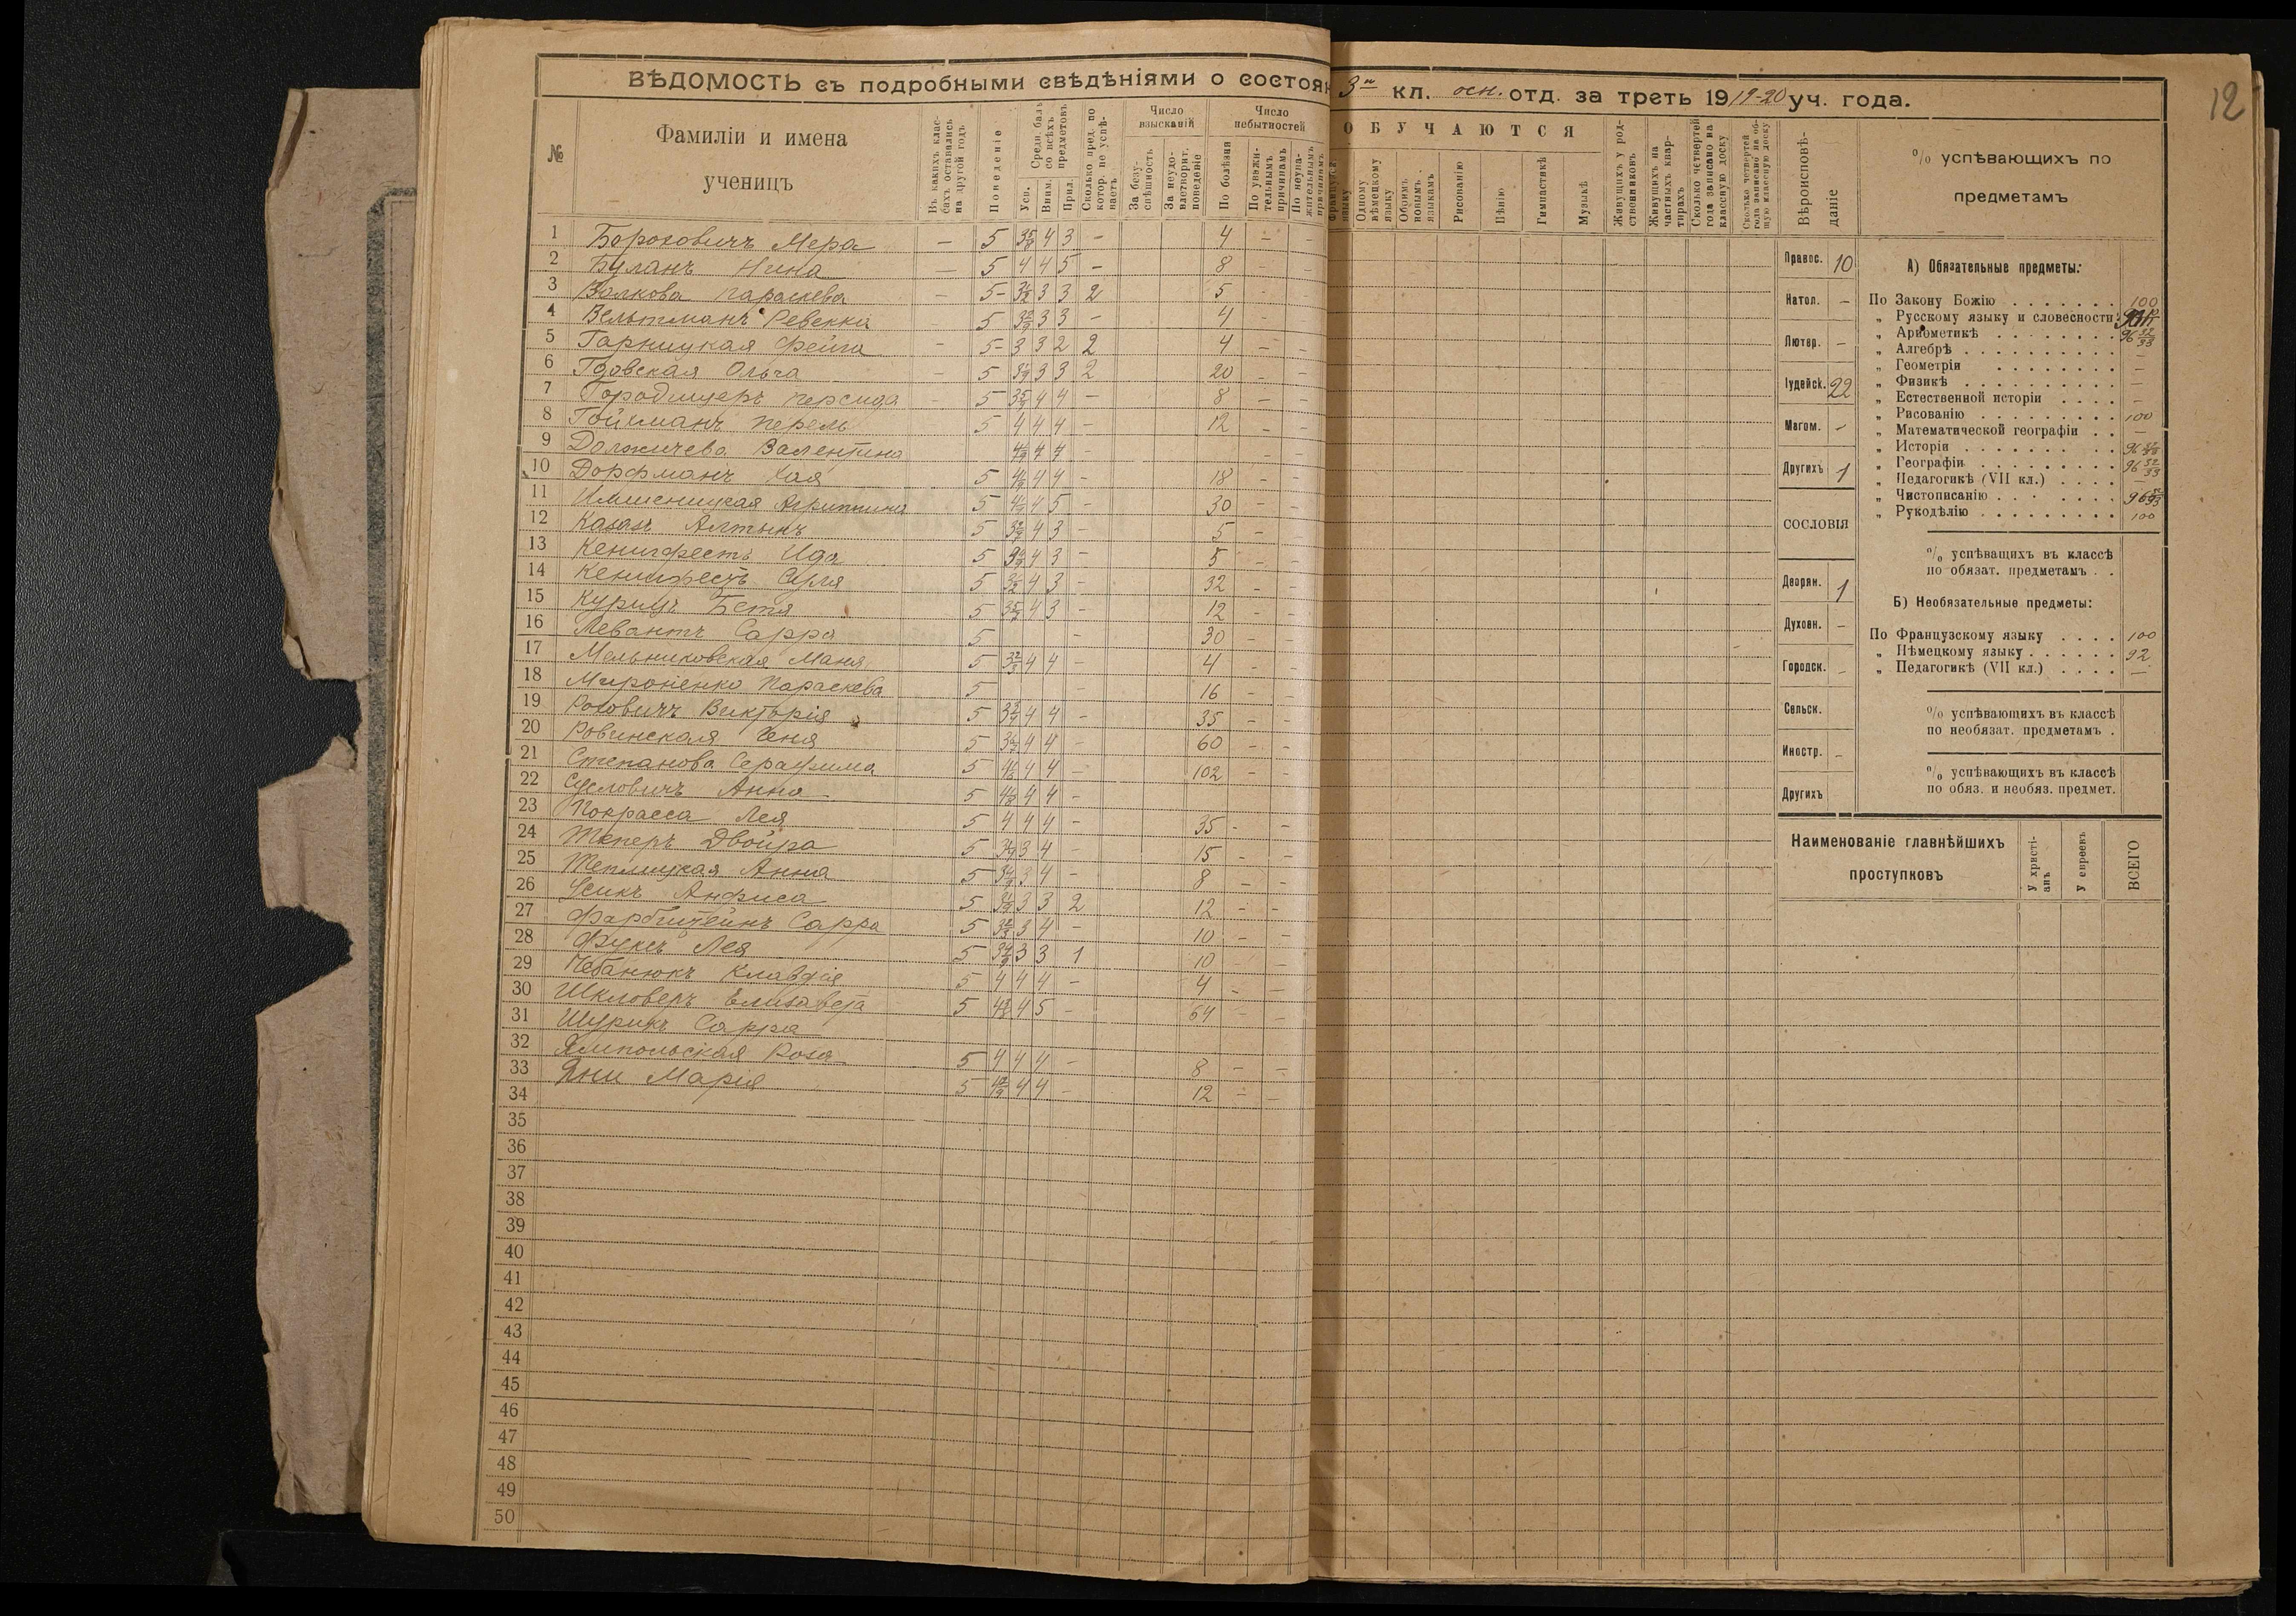 ВѢДОМОСТЬ съ подробными свѣдѣніями о состоян
№
Фамиліи и имена
ученицъ
Въ какихъ клас-
сахъ оставались
на другой годъ
Поведеніе
Средн. балъ
со всѣхъ
предметовъ
Усп.
Вним.
Прил.
Сколько пред. по
котор. не успѣ-
ваетъ
Число
взысканій
За безу-
спѣшность
За неудо-
влетворит.
поведеніе
Число
небытностей
По болѣзни
По уважи-
тельнымъ
причинамъ
По неува-
жительнымъ
причинамъ
1 Бороховичъ Мера — 5 3 5/8 4 3 - 4 - -
2 Буланъ Нина — 5 4 4 5 - 8 - -
3 Волкова Параскева — 5- 3 3 2 5 - -
4 Вельтманъ Ревекка - 5 3 3 - 4 - -
5 Гарницкая Фейга - 5- 3 3 2 2 4 - -
6 Гдовская Ольга - 5 3 3 2 20 - -
7 Городищеръ Персида - 5 4 4 - 8 - -
8 Гойхманъ Перель 5 4 4 4 - 12 - -
9 Должичева Валентина 4 4
10 Дорфманъ Хая 5 4 4 - 18 - -
11 Имшеницкая Агриппина 5 4 5 - 30 - -
12 Казазъ Алтынъ 5 4 3 - 5 - -
13 Кенигфестъ Ида 5 4 3 - 5 - -
14 Кенигфестъ Суля 5 4 3 - 32 - -
15 Курицъ Бетя 5 4 3 - 12 - -
16 Левантъ Сарра 5 - 30 - -
17 Мельниковская Маня 5 4 4 - 4 - -
18 Мироненко Параскева 5 - 16 - -
19 Роговичъ Викторія 5 4 4 - 35 - -
20 Ровинская Геня 5 4 4 - 60 - -
21 Степанова Серафима 5 4 4 - 102 - -
22 Сусловичъ Анна 5 4 4 -
23 Покрасса Лея 5 4 4 4 - 35 - -
24 Теперъ Двойра 5 3 4 - 15 - -
25 Теплицкая Анна 5 3 4 - 8 - -
26 Усикъ Анфиса 5 3 3 2 12 - -
27 Фарбштейнъ Сарра 5 3 4 - 10 - -
28 Фуксъ Лея 5 3 3 1 10 - -
29 Чебанюкъ Клавдія 5 4 4 4 - 4 - -
30 Шкловеръ Елизавета 5 4 5 - 64 - -
31 Шурикъ Сарра
32 Ямпольская Роза 5 4 4 4 - 8 - -
33 Яни Марія 5 4 4 - 12 - -
34
35
36
37
38
39
40
41
42
43
44
45
46
47
48
49
50
3 кл. осн. отд. за треть 1919-20 уч. года.
12
ОБУЧАЮТСЯ
Француз.
языку
Одному
нѣмецкому
языку
Обоимъ
новымъ
языкамъ
Рисованію
Пѣнію
Гимнастикѣ
Музыкѣ
Живущихъ у род-
ственниковъ
Живущихъ на
частныхъ квар-
тирахъ
Сколько четвертей
года записано на
классную доску
Сколько четвертей
года записано на об-
щую классную доску
Вѣроисповѣ-
даніе
Правос. 10
Катол. —
Лютер. —
Іудейск. 22
Магом. -
Другихъ 1
СОСЛОВІЯ
Дворян. 1
Духовн. —
Городск. -
Сельск.
Иностр. -
Другихъ
% успѣвающихъ по
предметамъ
А) Обязательные предметы:
По Закону Божію . . . . . . . 100
„ Русскому языку и словесности
„ Ариѳметикѣ . . . . . . . . 96 32/33
„ Алгебрѣ . . . . . . . . . . —
„ Геометріи . . . . . . . . —
„ Физикѣ . . . . . . . . . . —
„ Естественной исторіи . . . . —
„ Рисованію . . . . . . . . . 100
„ Математической географіи . . —
„ Исторіи . . . . . . . . . 96 32/33
„ Географіи . . . . . . . . . 96 32/33
„ Педагогикѣ (VII кл.) . . . . —
„ Чистописанію . . . . . . . 96 32/33
„ Рукодѣлію . . . . . . . . . 100
% успѣващихъ въ классѣ
по обязат. предметамъ . .
Б) Необязательные предметы:
По Французскому языку . . . . 100
„ Нѣмецкому языку . . . . . . 92
„ Педагогикѣ (VII кл.) . . . . —
% успѣвающихъ въ классѣ
по необязат. предметамъ .
% успѣвающихъ въ классѣ
по обяз. и необяз. предмет.
Наименованіе главнѣйшихъ
проступковъ
У христі-
анъ
У евреевъ
ВСЕГО